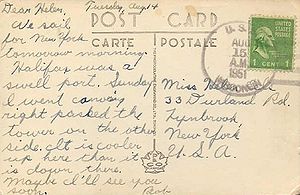 Tuesday, Aug 14
Dear Helen,
We sail
for New York
tomorrow morning.
Halifax was a
swell port, Sunday
I went canoeing
right passed the
tower on the other
side. It is cooler
up here than it
is down there.
Maybe I'll see you
soon.
Bob
POST CARD
CARTE POSTALE
U.S.
AUG
15
A.M.
1951
1 CENT 1
Miss Helen
33 Durland Rd.
Lynbrook
New York
U.S.A